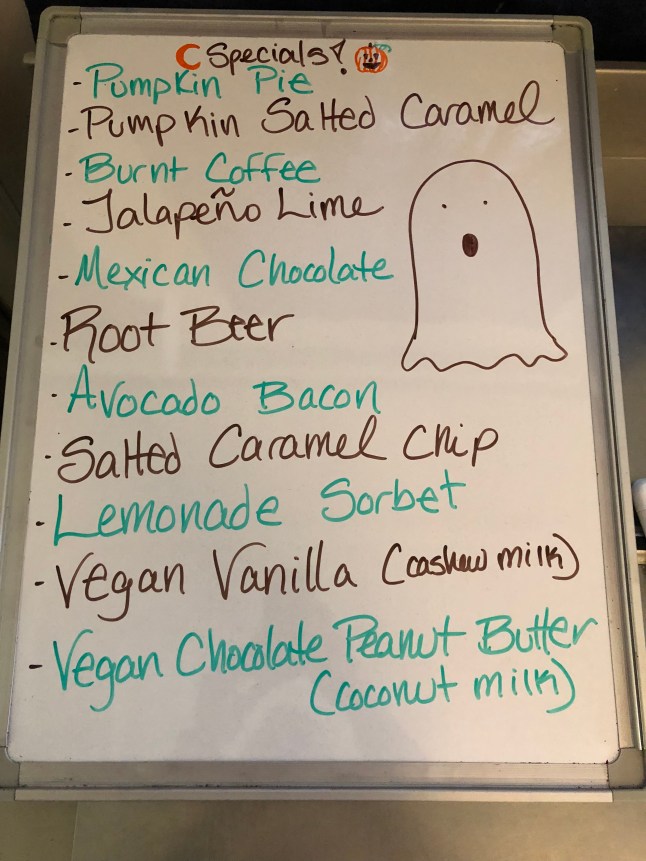 Specials!
- Pumpkin Pie
- Pumpkin Salted Caramel
- Burnt Coffee
- Jalapeño Lime
- Mexican Chocolate
- Root Beer
- Avocado Bacon
- Salted Caramel Chip
- Lemonade Sorbet
- Vegan Vanilla (cashew milk)
- Vegan Chocolate Peanut Butter
(coconut milk)